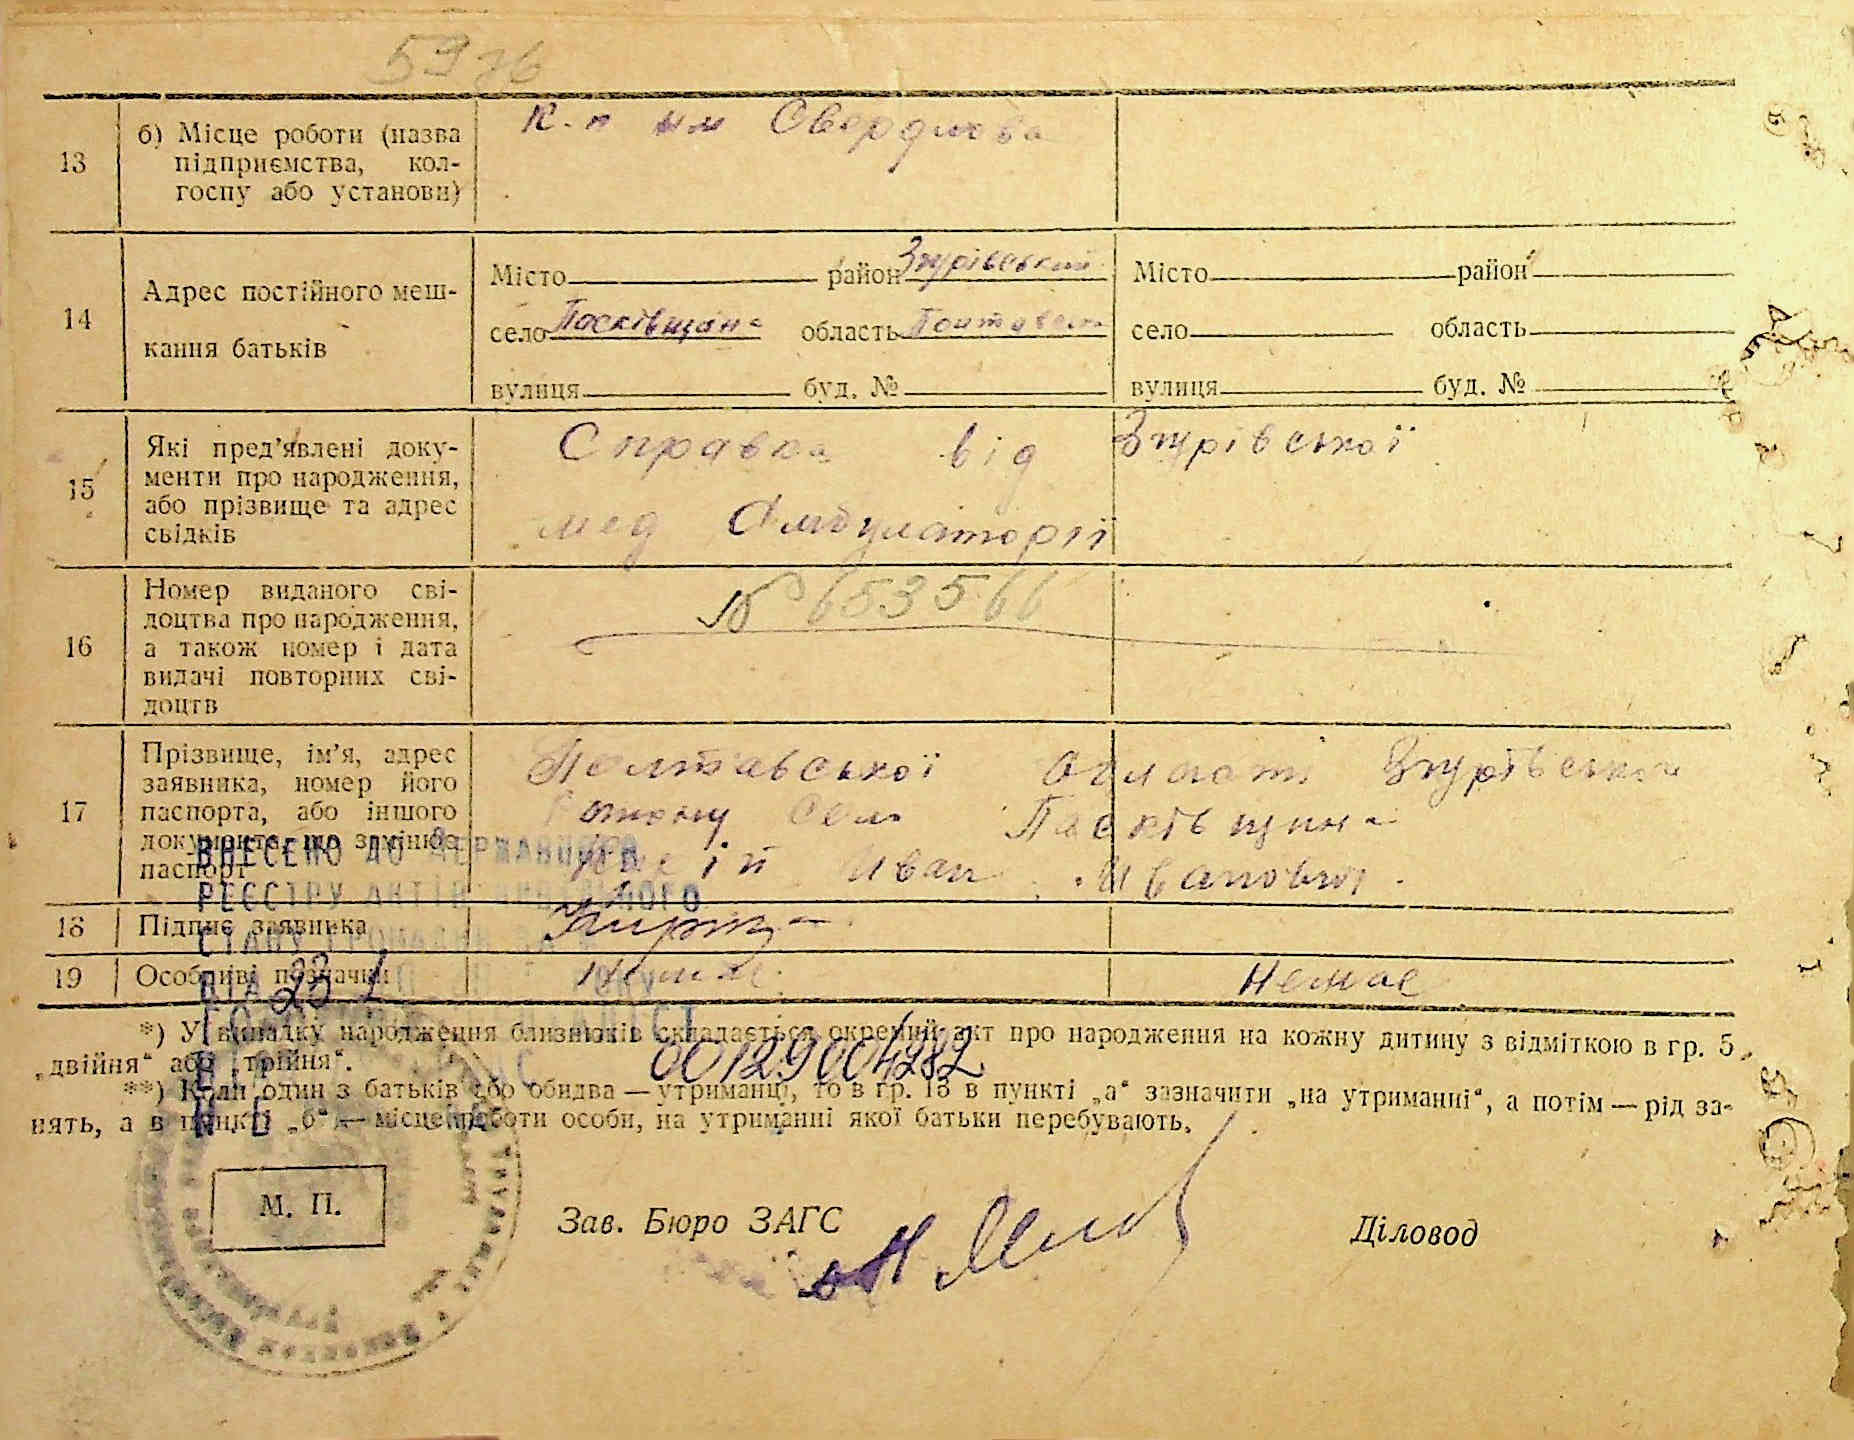 13
б) Місце роботи (назва
підприємства, кол-
госпу або установи)
к-п им Свердлова
14
Адрес постійного меш-
кання батьків
Місто район Згурівський
село Пасківщина область Полтавськ
вулиця буд. №
Місто район
село область
вулиця буд. №
15
Які пред’явлені доку-
менти про народження,
або прізвище та адрес
свідків
Справка від Згурівської
мед Амбулаторії
16
Номер виданого сві-
доцтва про народження,
а також номер і дата
видачі повторних сві-
доцтв
№ 653566
17
Прізвище, ім’я, адрес
заявника, номер його
паспорта, або іншого
документа, що змінює
паспорт
Полтавської області Згурівськ
село Пасківщина
Иван Иванович
ВНЕСЕНО ДО ДЕРЖАВНОГО
РЕЄСТРУ АКТІВ ЦИВІЛЬНОГО
СТАНУ ГРОМАДЯН
18
Підпис заявника
19
Особливі позначки
Немає
Немає
*) У випадку народження близнюків складається окремий акт про народження на кожну дитину з відміткою в гр. 5
„двійня“ або „трійня“.
00129004282
**) Коли один з батьків або обидва — утриманці, то в гр. 13 в пункті „а“ зазначити „на утриманні“, а потім — рід за-
нять, а в пункті „б“ — місце роботи особи, на утриманні якої батьки перебувають.
М. П.
Зав. Бюро ЗАГС
Діловод